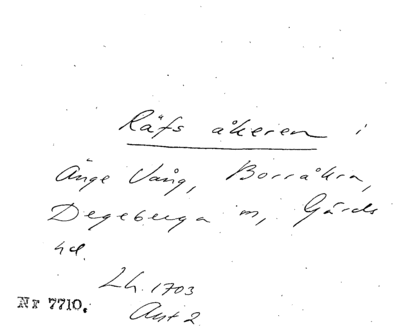 Räfs åkeren i
Änge Vång, Borråkra,
Degeberga sn, Gärds
hd.
Lh. 1703
Ant 2
Nr 7710.